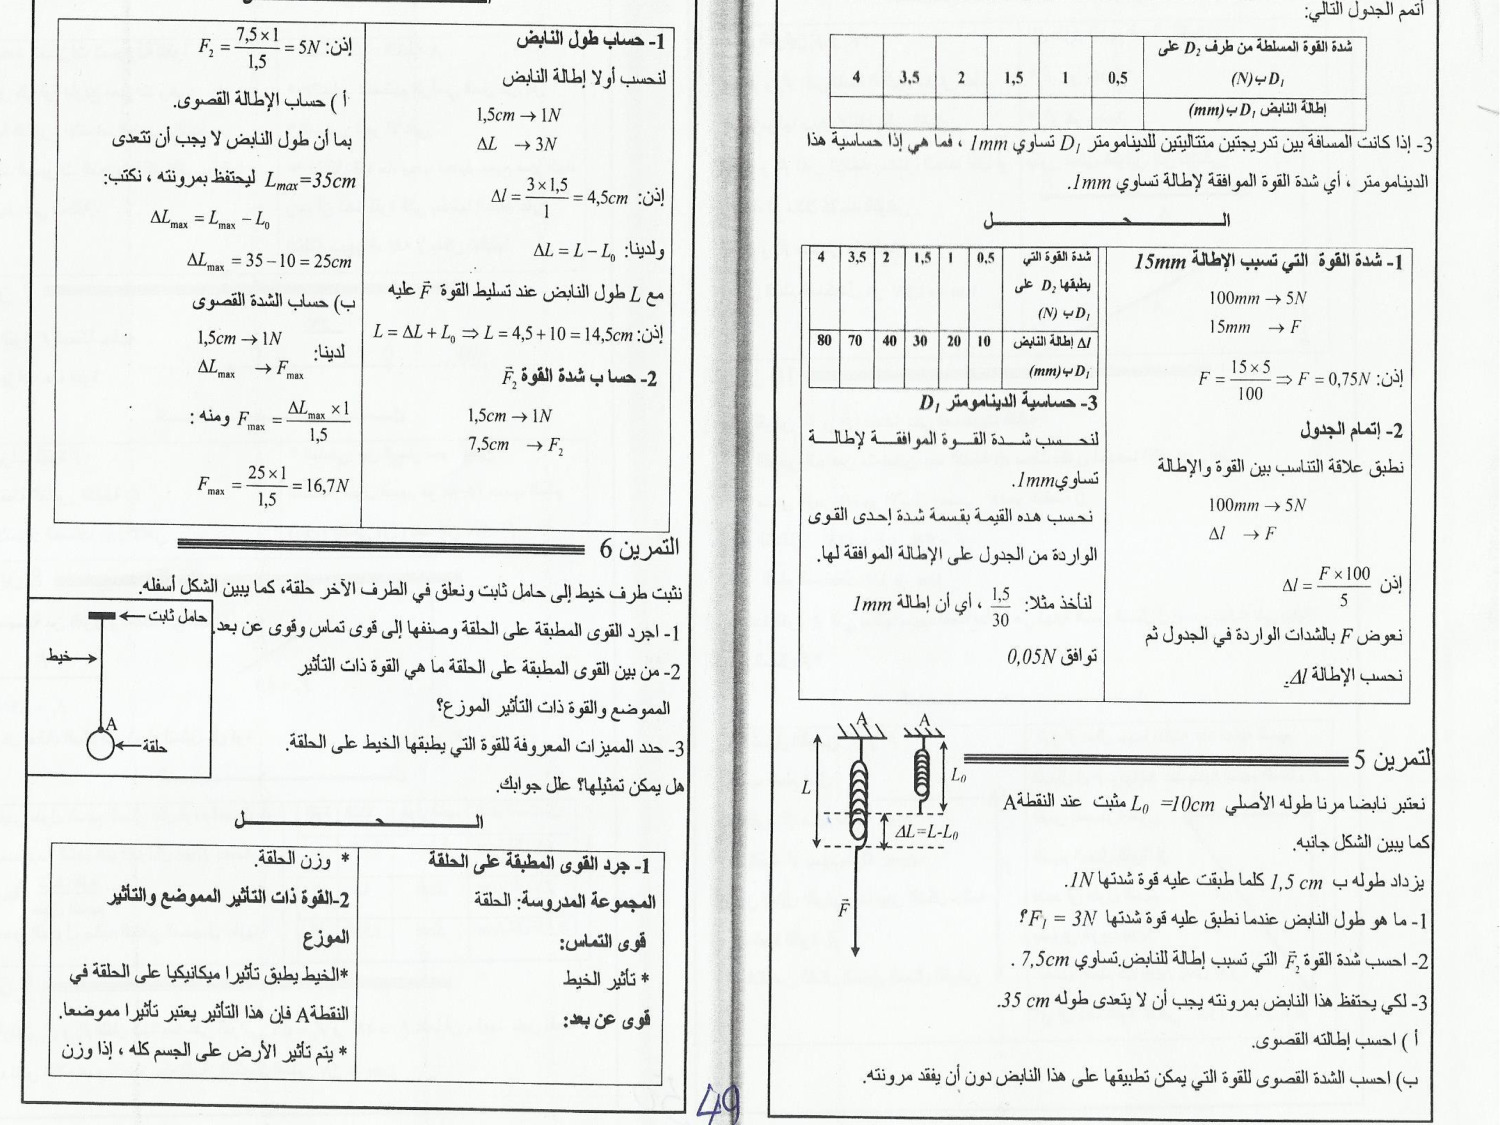 أتمم الجدول التالي:
شدة القوة المسلطة من طرف D2 على D1 ب(N) 0,5 1 1,5 2 3,5 4
إطالة النابض D1 ب(mm)
3- إذا كانت المسافة بين تدريجتين متتاليتين للدينامومتر D1 تساوي 1mm ، فما هي إذا حساسية هذا
الدينامومتر ، أي شدة القوة الموافقة لإطالة تساوي 1mm.
الـحـل
1- شدة القوة التي تسبب الإطالة 15mm
100mm → 5N
15mm → F
إذن: F = (15 × 5)/100 ⇒ F = 0,75N
2- إتمام الجدول
نطبق علاقة التناسب بين القوة والإطالة
100mm → 5N
Δl → F
إذن Δl = (F × 100)/5
نعوض F بالشدات الواردة في الجدول ثم
نحسب الإطالة Δl.
شدة القوة التي يطبقها D2 على D1 ب (N) 0,5 1 1,5 2 3,5 4
Δl إطالة النابض D1 ب(mm) 10 20 30 40 70 80
3- حساسية الدينامومتر D1
لنحسب شدة القوة الموافقة لإطالة
تساوي 1mm.
نحسب هده القيمة بقسمة شدة إحدى القوى
الواردة من الجدول على الإطالة الموافقة لها.
لنأخذ مثلا: 1,5/30 ، أي أن إطالة 1mm
توافق 0,05N
التمرين 5
نعتبر نابضا مرنا طوله الأصلي L0 =10cm مثبت عند النقطة A
كما يبين الشكل جانبه.
يزداد طوله ب 1,5 cm كلما طبقت عليه قوة شدتها 1N.
1- ما هو طول النابض عندما نطبق عليه قوة شدتها F1 = 3N ؟
2- احسب شدة القوة F⃗2 التي تسبب إطالة للنابض تساوي 7,5cm .
3- لكي يحتفظ هذا النابض بمرونته يجب أن لا يتعدى طوله 35 cm.
أ ) احسب إطالته القصوى.
ب) احسب الشدة القصوى للقوة التي يمكن تطبيقها على هذا النابض دون أن يفقد مرونته.
A
A
L
L0
ΔL=L-L0
F⃗
1- حساب طول النابض
لنحسب أولا إطالة النابض
1,5cm → 1N
ΔL → 3N
إذن: Δl = (3 × 1,5)/1 = 4,5cm
ولدينا: ΔL = L − L0
مع L طول النابض عند تسليط القوة F⃗ عليه
إذن: L = ΔL + L0 ⇒ L = 4,5 + 10 = 14,5cm
2- حساب شدة القوة F⃗2
1,5cm → 1N
7,5cm → F2
إذن: F2 = (7,5 × 1)/1,5 = 5N
أ ) حساب الإطالة القصوى.
بما أن طول النابض لا يجب أن تتعدى
Lmax=35cm ليحتفظ بمرونته ، نكتب:
ΔLmax = Lmax − L0
ΔLmax = 35 − 10 = 25cm
ب) حساب الشدة القصوى
لدينا: 1,5cm → 1N
ΔLmax → Fmax
ومنه : Fmax = (ΔLmax × 1)/1,5
Fmax = (25 × 1)/1,5 = 16,7N
التمرين 6
نثبت طرف خيط إلى حامل ثابت ونعلق في الطرف الآخر حلقة، كما يبين الشكل أسفله.
1- اجرد القوى المطبقة على الحلقة وصنفها إلى قوى تماس وقوى عن بعد.
2- من بين القوى المطبقة على الحلقة ما هي القوة ذات التأثير
المموضع والقوة ذات التأثير الموزع؟
3- حدد المميزات المعروفة للقوة التي يطبقها الخيط على الحلقة.
هل يمكن تمثيلها؟ علل جوابك.
حامل ثابت
خيط
A
حلقة
الـحـل
1- جرد القوى المطبقة على الحلقة
المجموعة المدروسة: الحلقة
قوى التماس:
* تأثير الخيط
قوى عن بعد:
* وزن الحلقة.
2-القوة ذات التأثير المموضع والتأثير
الموزع
*الخيط يطبق تأثيرا ميكانيكيا على الحلقة في
النقطة A فإن هذا التأثير يعتبر تأثيرا مموضعا.
* يتم تأثير الأرض على الجسم كله ، إذا وزن
49